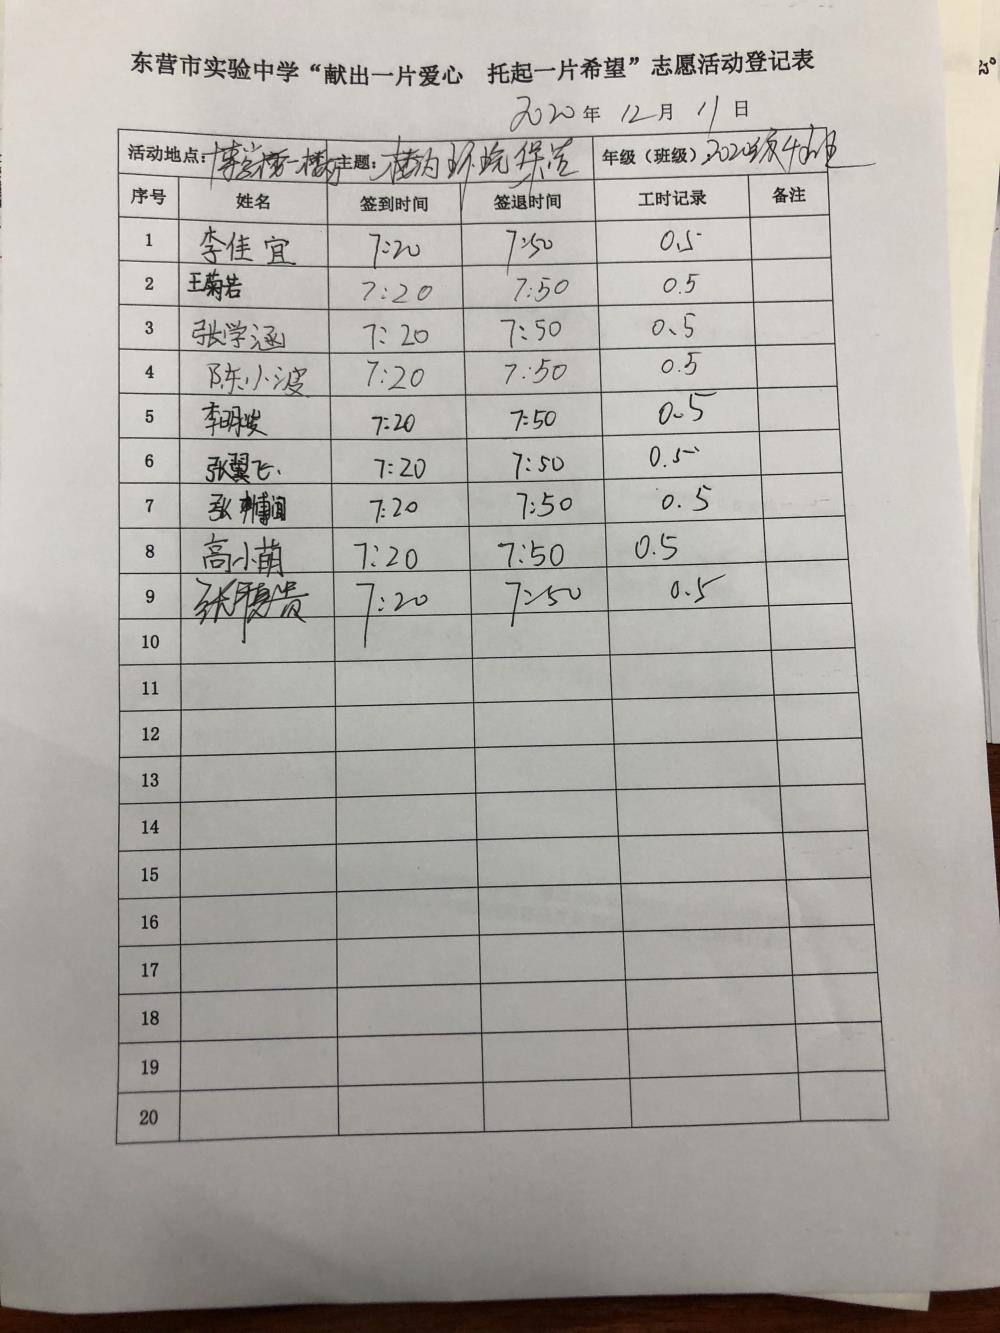 东营市实验中学“献出一片爱心 托起一片希望”志愿活动登记表
2020年 12月 11日
活动地点：博学楼一楼厅 主题：楼内环境保洁 年级（班级）：2020级4班
序号 姓名 签到时间 签退时间 工时记录 备注
1 李佳宜 7:20 7:50 0.5
2 王菊若 7:20 7:50 0.5
3 张学涵 7:20 7:50 0.5
4 陈小波 7:20 7:50 0.5
5 李明俊 7:20 7:50 0.5
6 张翼飞 7:20 7:50 0.5
7 张博闻 7:20 7:50 0.5
8 高小萌 7:20 7:50 0.5
9 张 贵 7:20 7:50 0.5
10
11
12
13
14
15
16
17
18
19
20